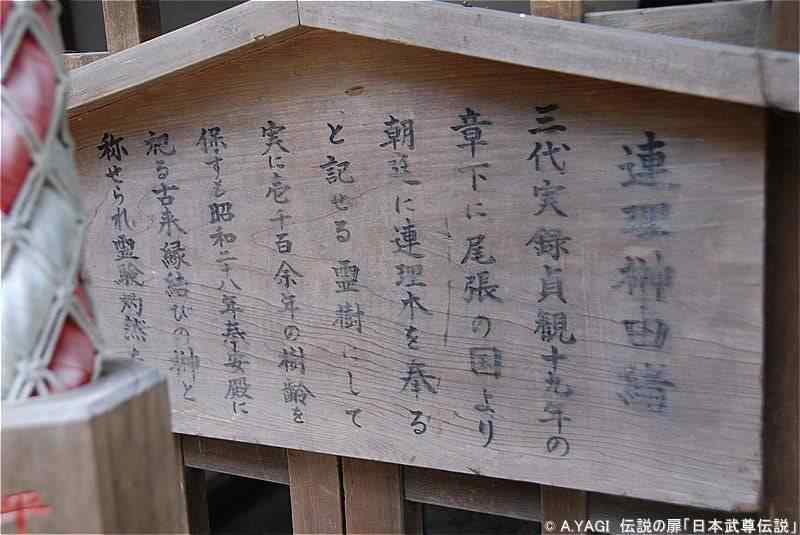 連理榊由緒
三代実録貞観十九年の
章下に尾張の国より
朝廷に連理木を奉る
と記せる霊樹にして
実に壱千百余年の樹齢を
保すも昭和二十八年奉安殿に
祀る古来縁結びの榊と
称せられ霊験灼然
© A.YAGI 伝説の扉「日本武尊伝説」